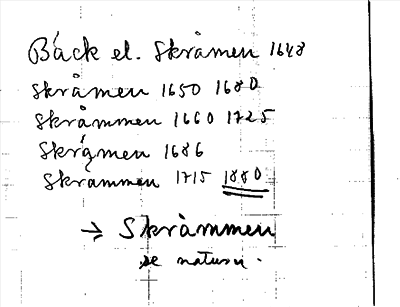 Bäck el. Skråmen 1648
Skråmen 1650 1680
Skråmmen 1660 1725
Skråmen 1686
Skråmmen 1715 1880
→ Skråmmen
se naturn.